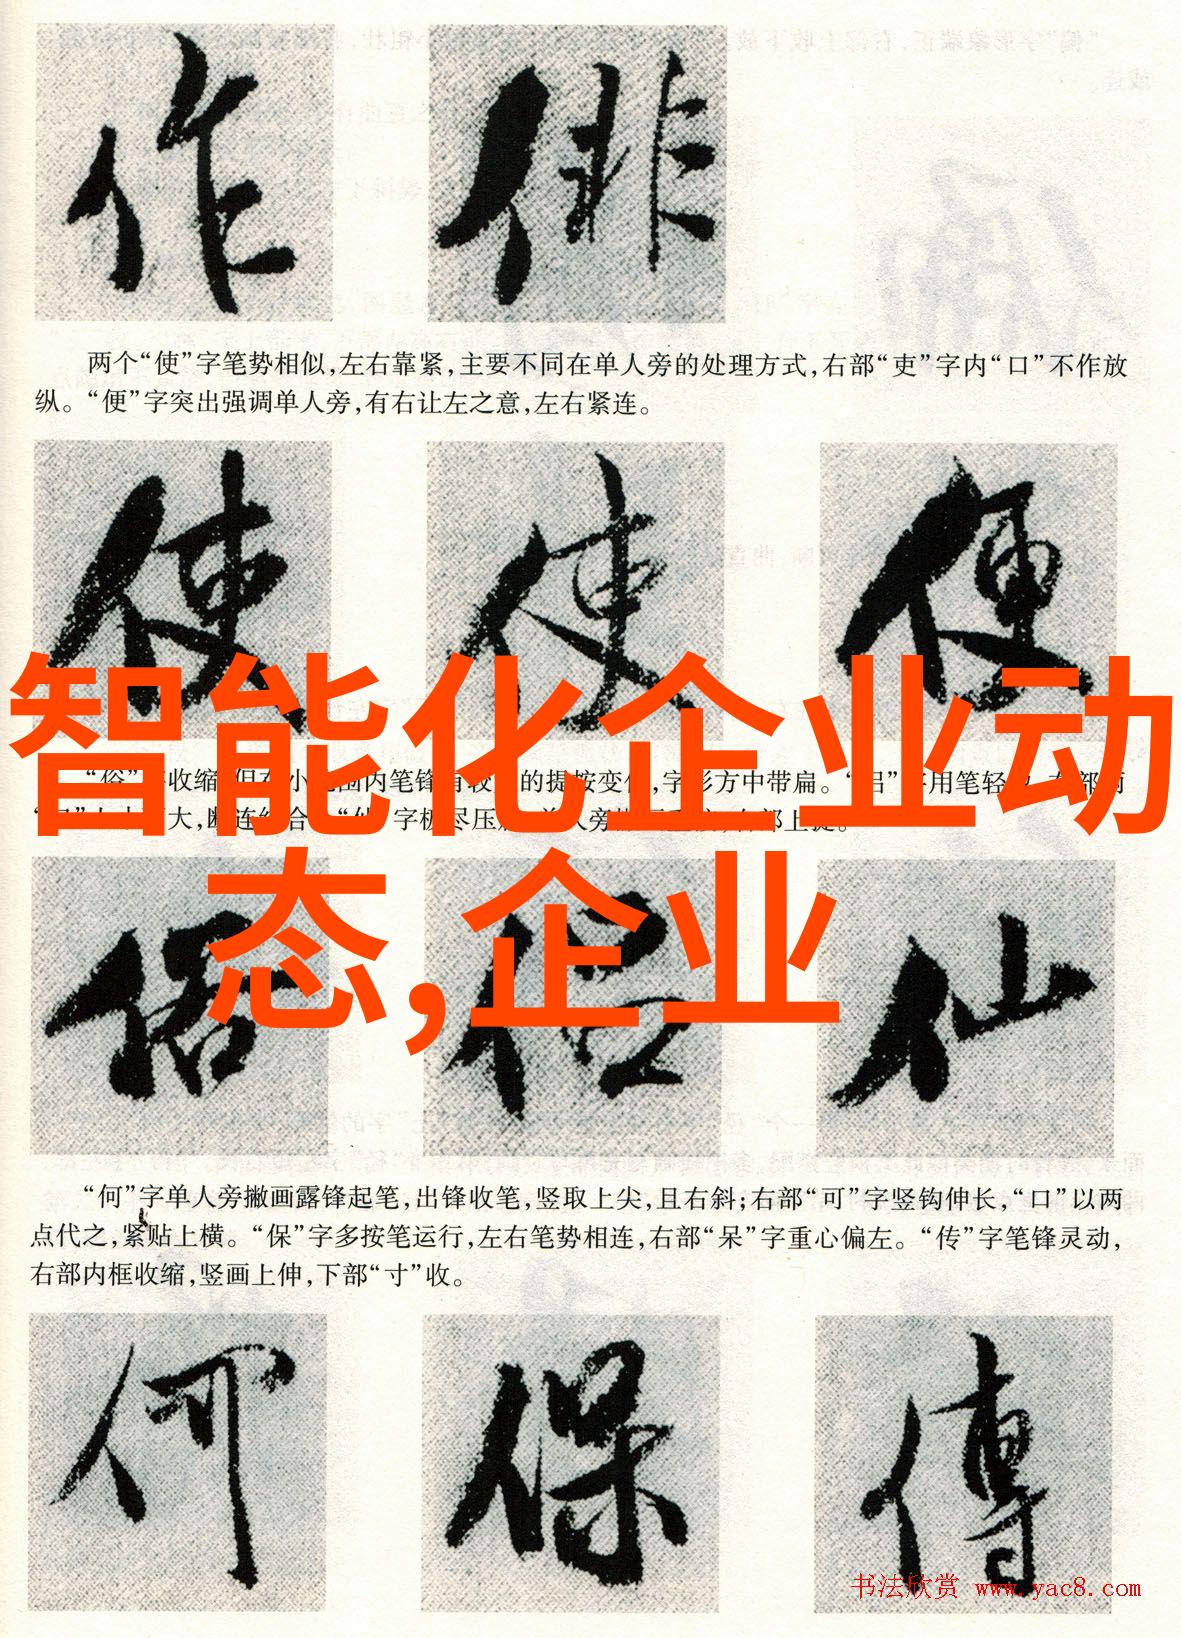 作 俳
两个“使”字笔势相似,左右靠紧,主要不同在单人旁的处理方式,右部“吏”字内“口”不作放
纵。“便”字突出强调单人旁,有右让左之意,左右紧连。
使 使 便
智能化企业动
“俗”收缩,但在小范围内笔锋有较的提按变,字形方中带扁。“吕”用笔轻
大,断连 字极尽压 单人旁 上提。
态,企业
俗 侣 仙
“何”字单人旁撇画露锋起笔,出锋收笔,竖取上尖,且右斜;右部“可”字竖钩伸长,“口”以两
点代之,紧贴上横。“保”字多按笔运行,左右笔势相连,右部“呆”字重心偏左。“传”字笔锋灵动,
右部内框收缩,竖画上伸,下部“寸”收。
何 保 傳
书法欣赏 www.yac8.com